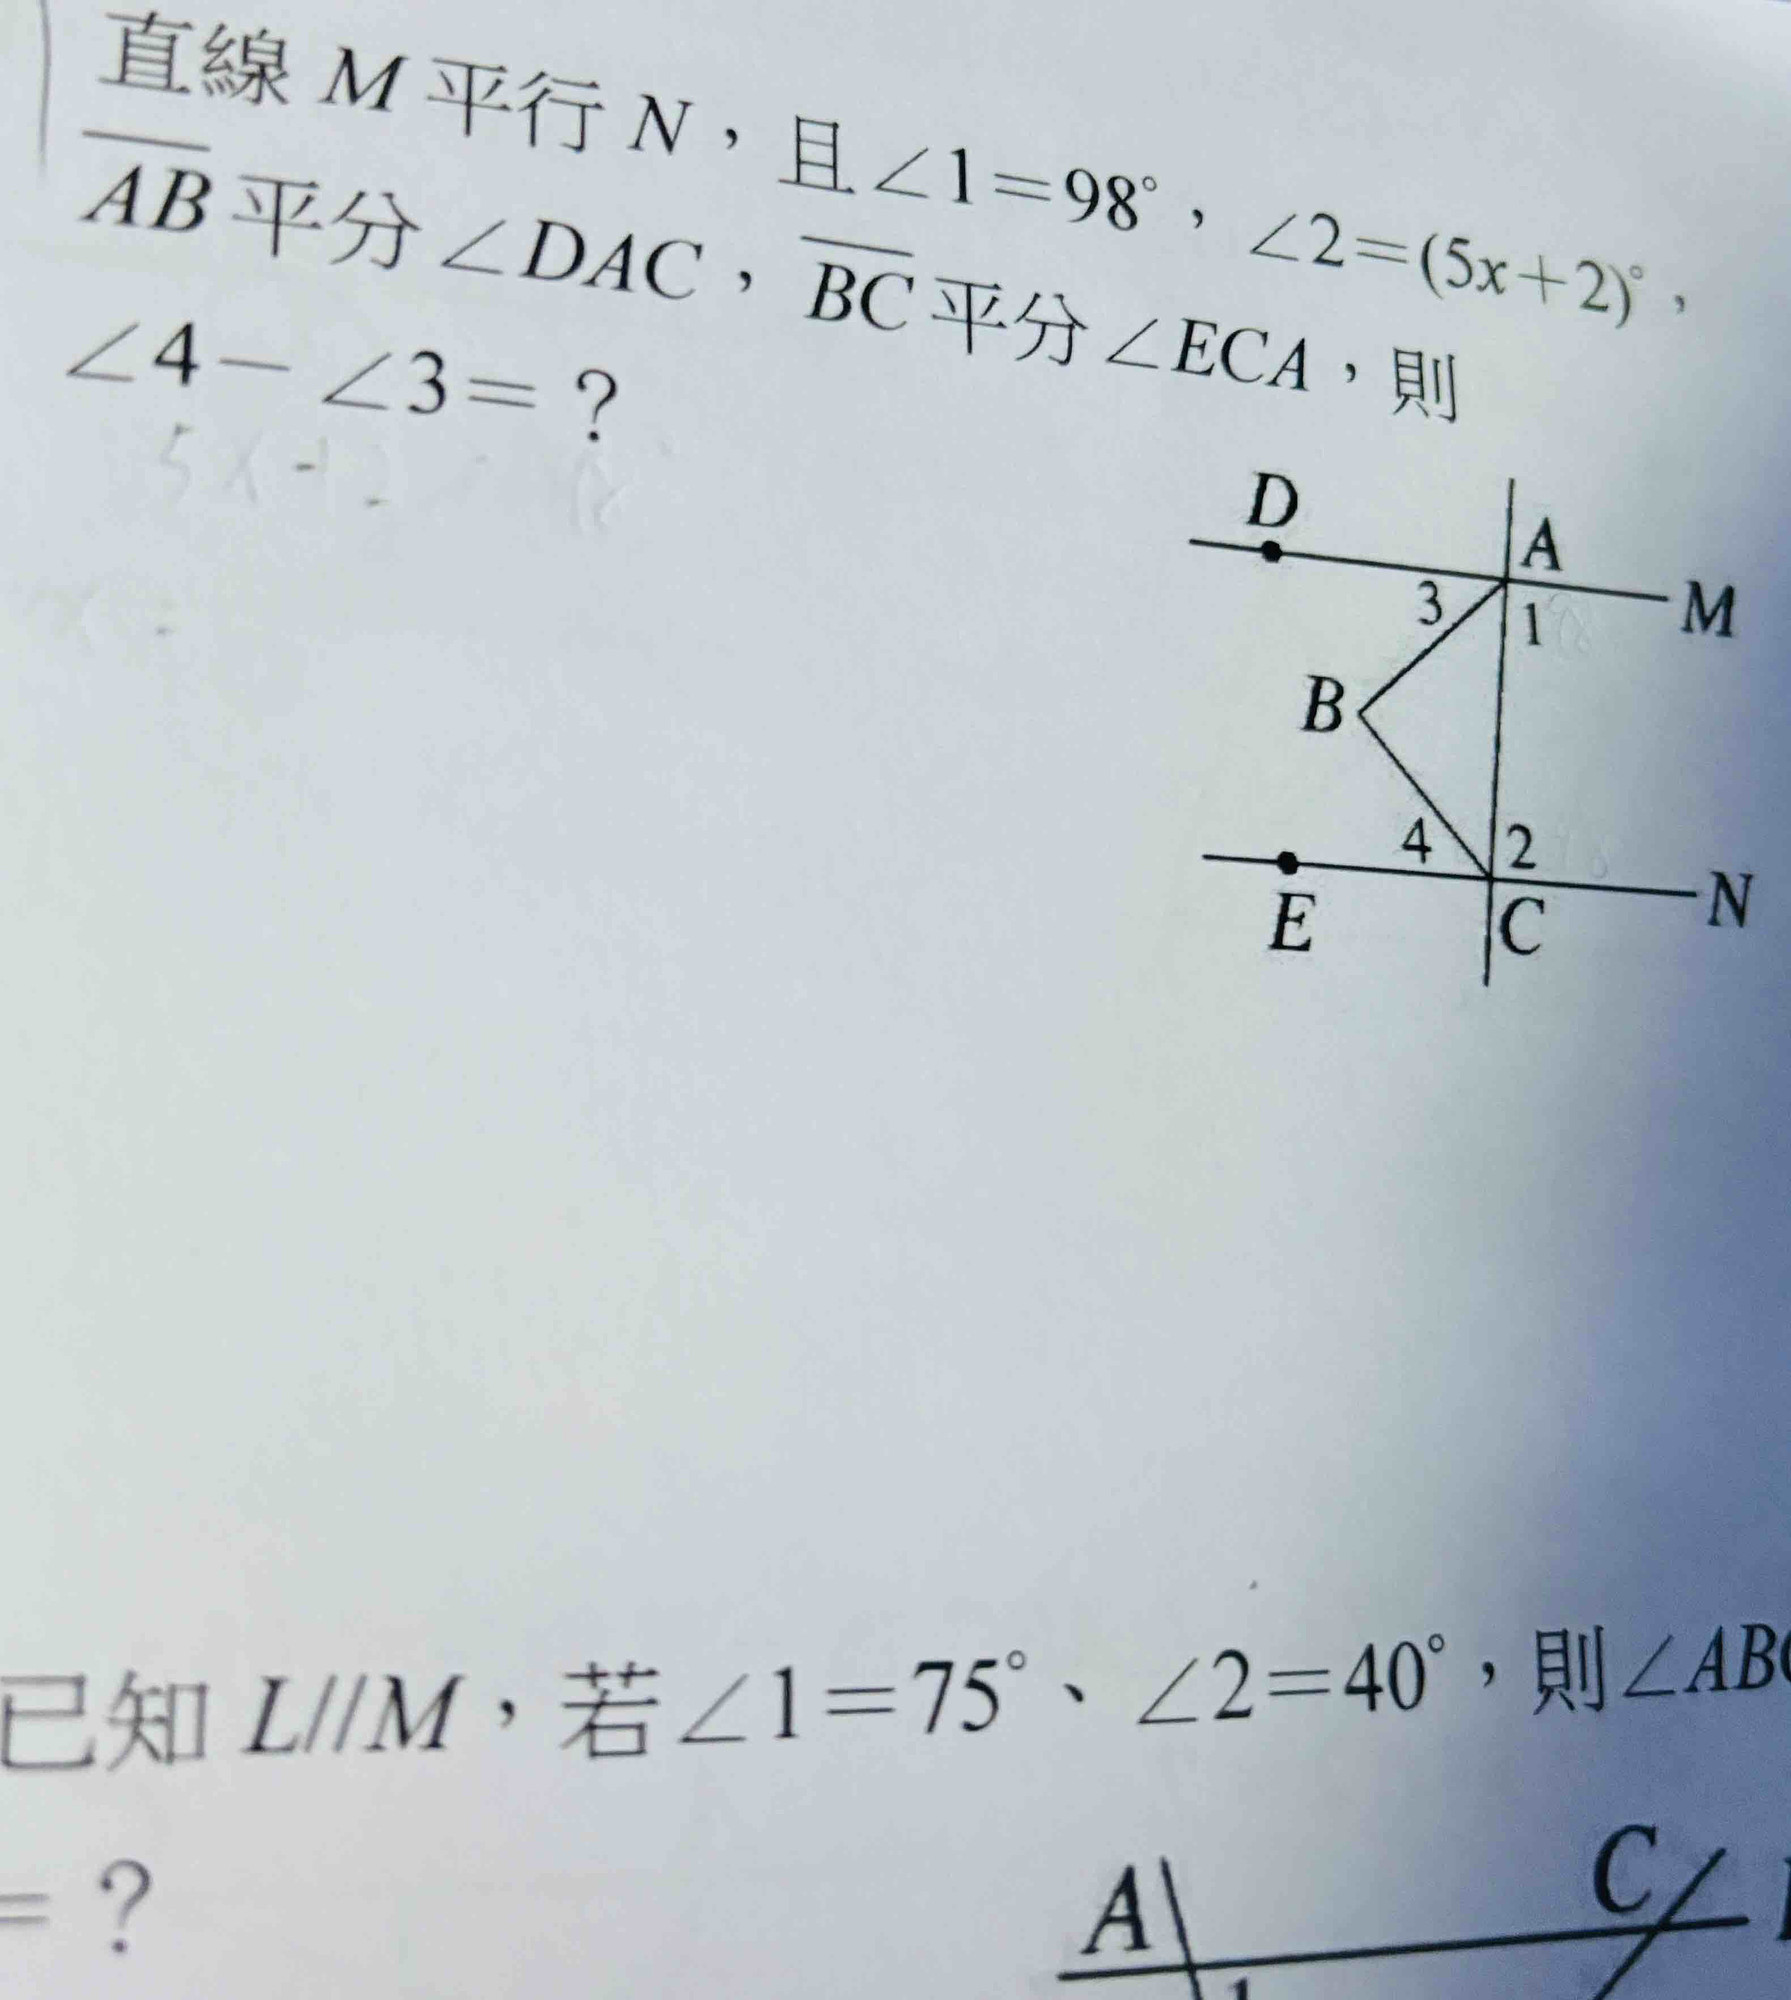 直線 M 平行 N，且∠1=98°，∠2=(5x+2)°，
AB 平分∠DAC，BC 平分∠ECA，則
∠4－∠3=？
5x+2
x =
D
A
M
3
1
B
4
2
N
E
C
已知 L//M，若∠1=75°、∠2=40°，則∠ABC
=？
A
C
1